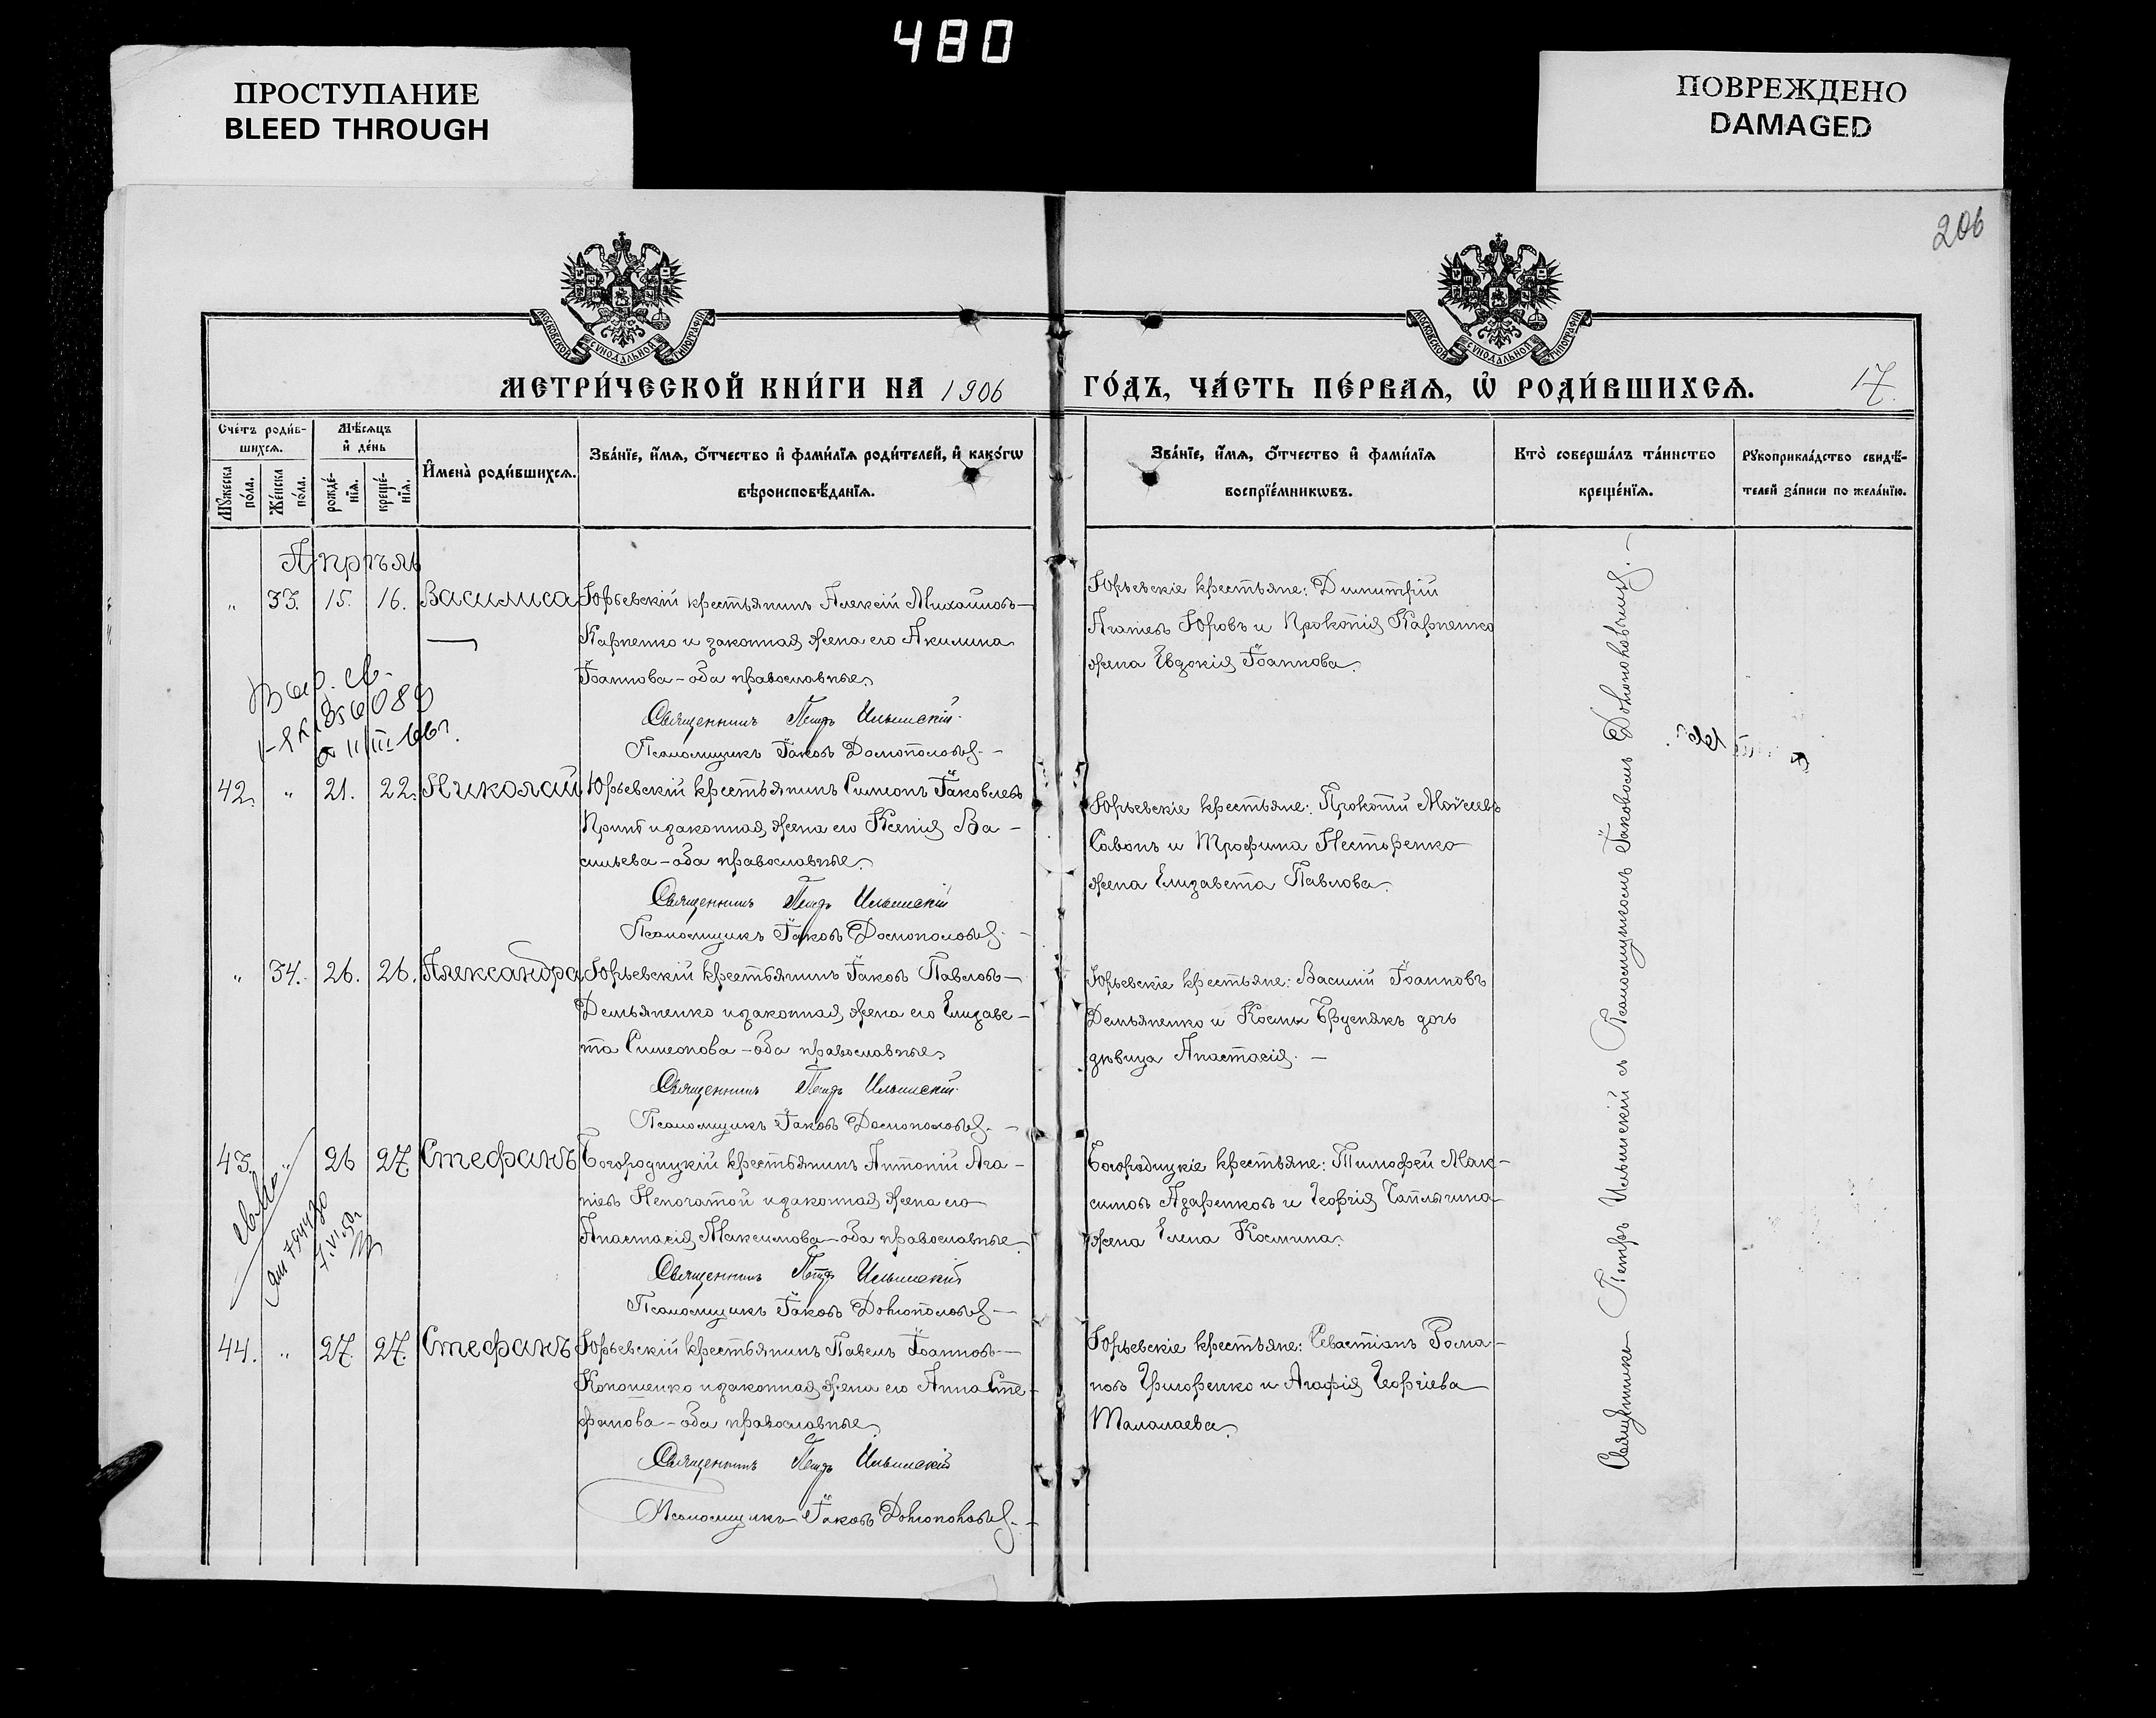 480
ПРОСТУПАНИЕ
BLEED THROUGH
ПОВРЕЖДЕНО
DAMAGED
206
МОСКОВСКОЙ СѴНОДАЛЬНОЙ ТИПОГРАФІИ
МОСКОВСКОЙ СѴНОДАЛЬНОЙ ТИПОГРАФІИ
МЕТРИ́ЧЕСКОЙ КНИ́ГИ НА 1906 ГО́ДЪ, ЧА́СТЬ ПЕ́РВАѦ, Ѡ҆ РОДИ́ВШИХСѦ. 17.
Сче́тъ роди́в-
шихсѧ.
Мѣ́сѧцъ
и҆ де́нь
Мꙋ́жеска
по́ла.
Же́нска
по́ла.
рожде́-
нїѧ.
креще́-
нїѧ.
И҆мена̀ роди́вшихсѧ.
Зва́нїе, и҆́мѧ, ѻ҆́тчество и҆ фами́лїѧ роди́телей, и҆ како́гѡ
вѣроисповѣ́данїѧ.
Зва́нїе, и҆́мѧ, ѻ҆́тчество и҆ фами́лїѧ
воспрїе́мникѡвъ.
Кто̀ соверша́лъ та́инство
креще́нїѧ.
Рꙋкоприкла́дство свидѣ́-
телей за́писи по жела́нїю.
Апрѣль
„ 33. 15. 16. Василиса Юрьевскій крестьянинъ Алексій Михаиловъ —
Карпенко и законная жена его Акилина
Іоаннова – оба православные.
Священникъ Петръ Ильинскій.
Псаломщикъ Іаковъ
Юрьевскіе крестьяне: Димитрій
Агапіевъ Юровъ и Прокопія Карпенко
жена Евдокія Іоаннова.
42. „ 21. 22. Николай Юрьевскій крестьянинъ Симеонъ Іаковлевъ
и законная жена его Ксенія Ва-
сильева – оба православные.
Священникъ Петръ Ильинскій
Псаломщикъ Іаковъ
Юрьевскіе крестьяне: Прокопій Моѵсеевъ
Савонъ и Трофима Нестеренко
жена Елизавета Павлова.
„ 34. 26. 26. Александра Юрьевскій крестьянинъ Іаковъ Павловъ —
Демьяненко и законная жена его Елизаве-
та Симеонова – оба православные.
Священникъ Петръ Ильинскій.
Псаломщикъ Іаковъ
Юрьевскіе крестьяне: Василій Іоанновъ
Демьяненко и Космы Бруснякъ дочь
дѣвица Анастасія. —
43. „ 26 27 Стефанъ Богородицкій крестьянинъ Антоній Ага-
піевъ Непочатой и законная жена его
Анастасія Максимова – оба православные.
Священникъ Петръ Ильинскій
Псаломщикъ Іаковъ
Богородицкіе крестьяне: Тимофей Мак-
симовъ и Георгія Чаплыгина
жена Елена Космина.
44. „ 27 27. Стефанъ Юрьевскій крестьянинъ Павелъ Іоанновъ —
Кононенко и законная жена его Анна Сте-
фанова – оба православные.
Священникъ Петръ Ильинскій
Псаломщикъ Іаковъ
Юрьевскіе крестьяне: Севастіанъ Рома-
новъ Григоренко и Агафія Георгіева
Малалаева.
Священникъ Петръ Ильинскій съ Псаломщикомъ Іаковомъ